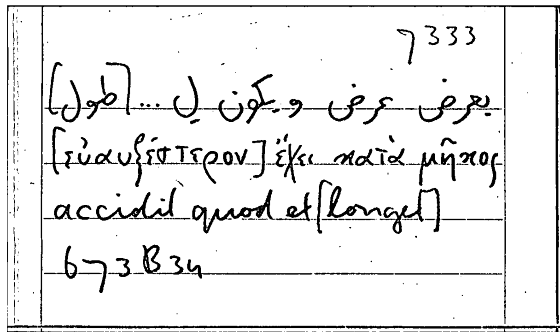 7333
يعرض عرض ويكون ل ... [طول]
[εὐαυξέστερον] ἔχει κατὰ μῆκος
accidit quod et [longet]
673 B 34